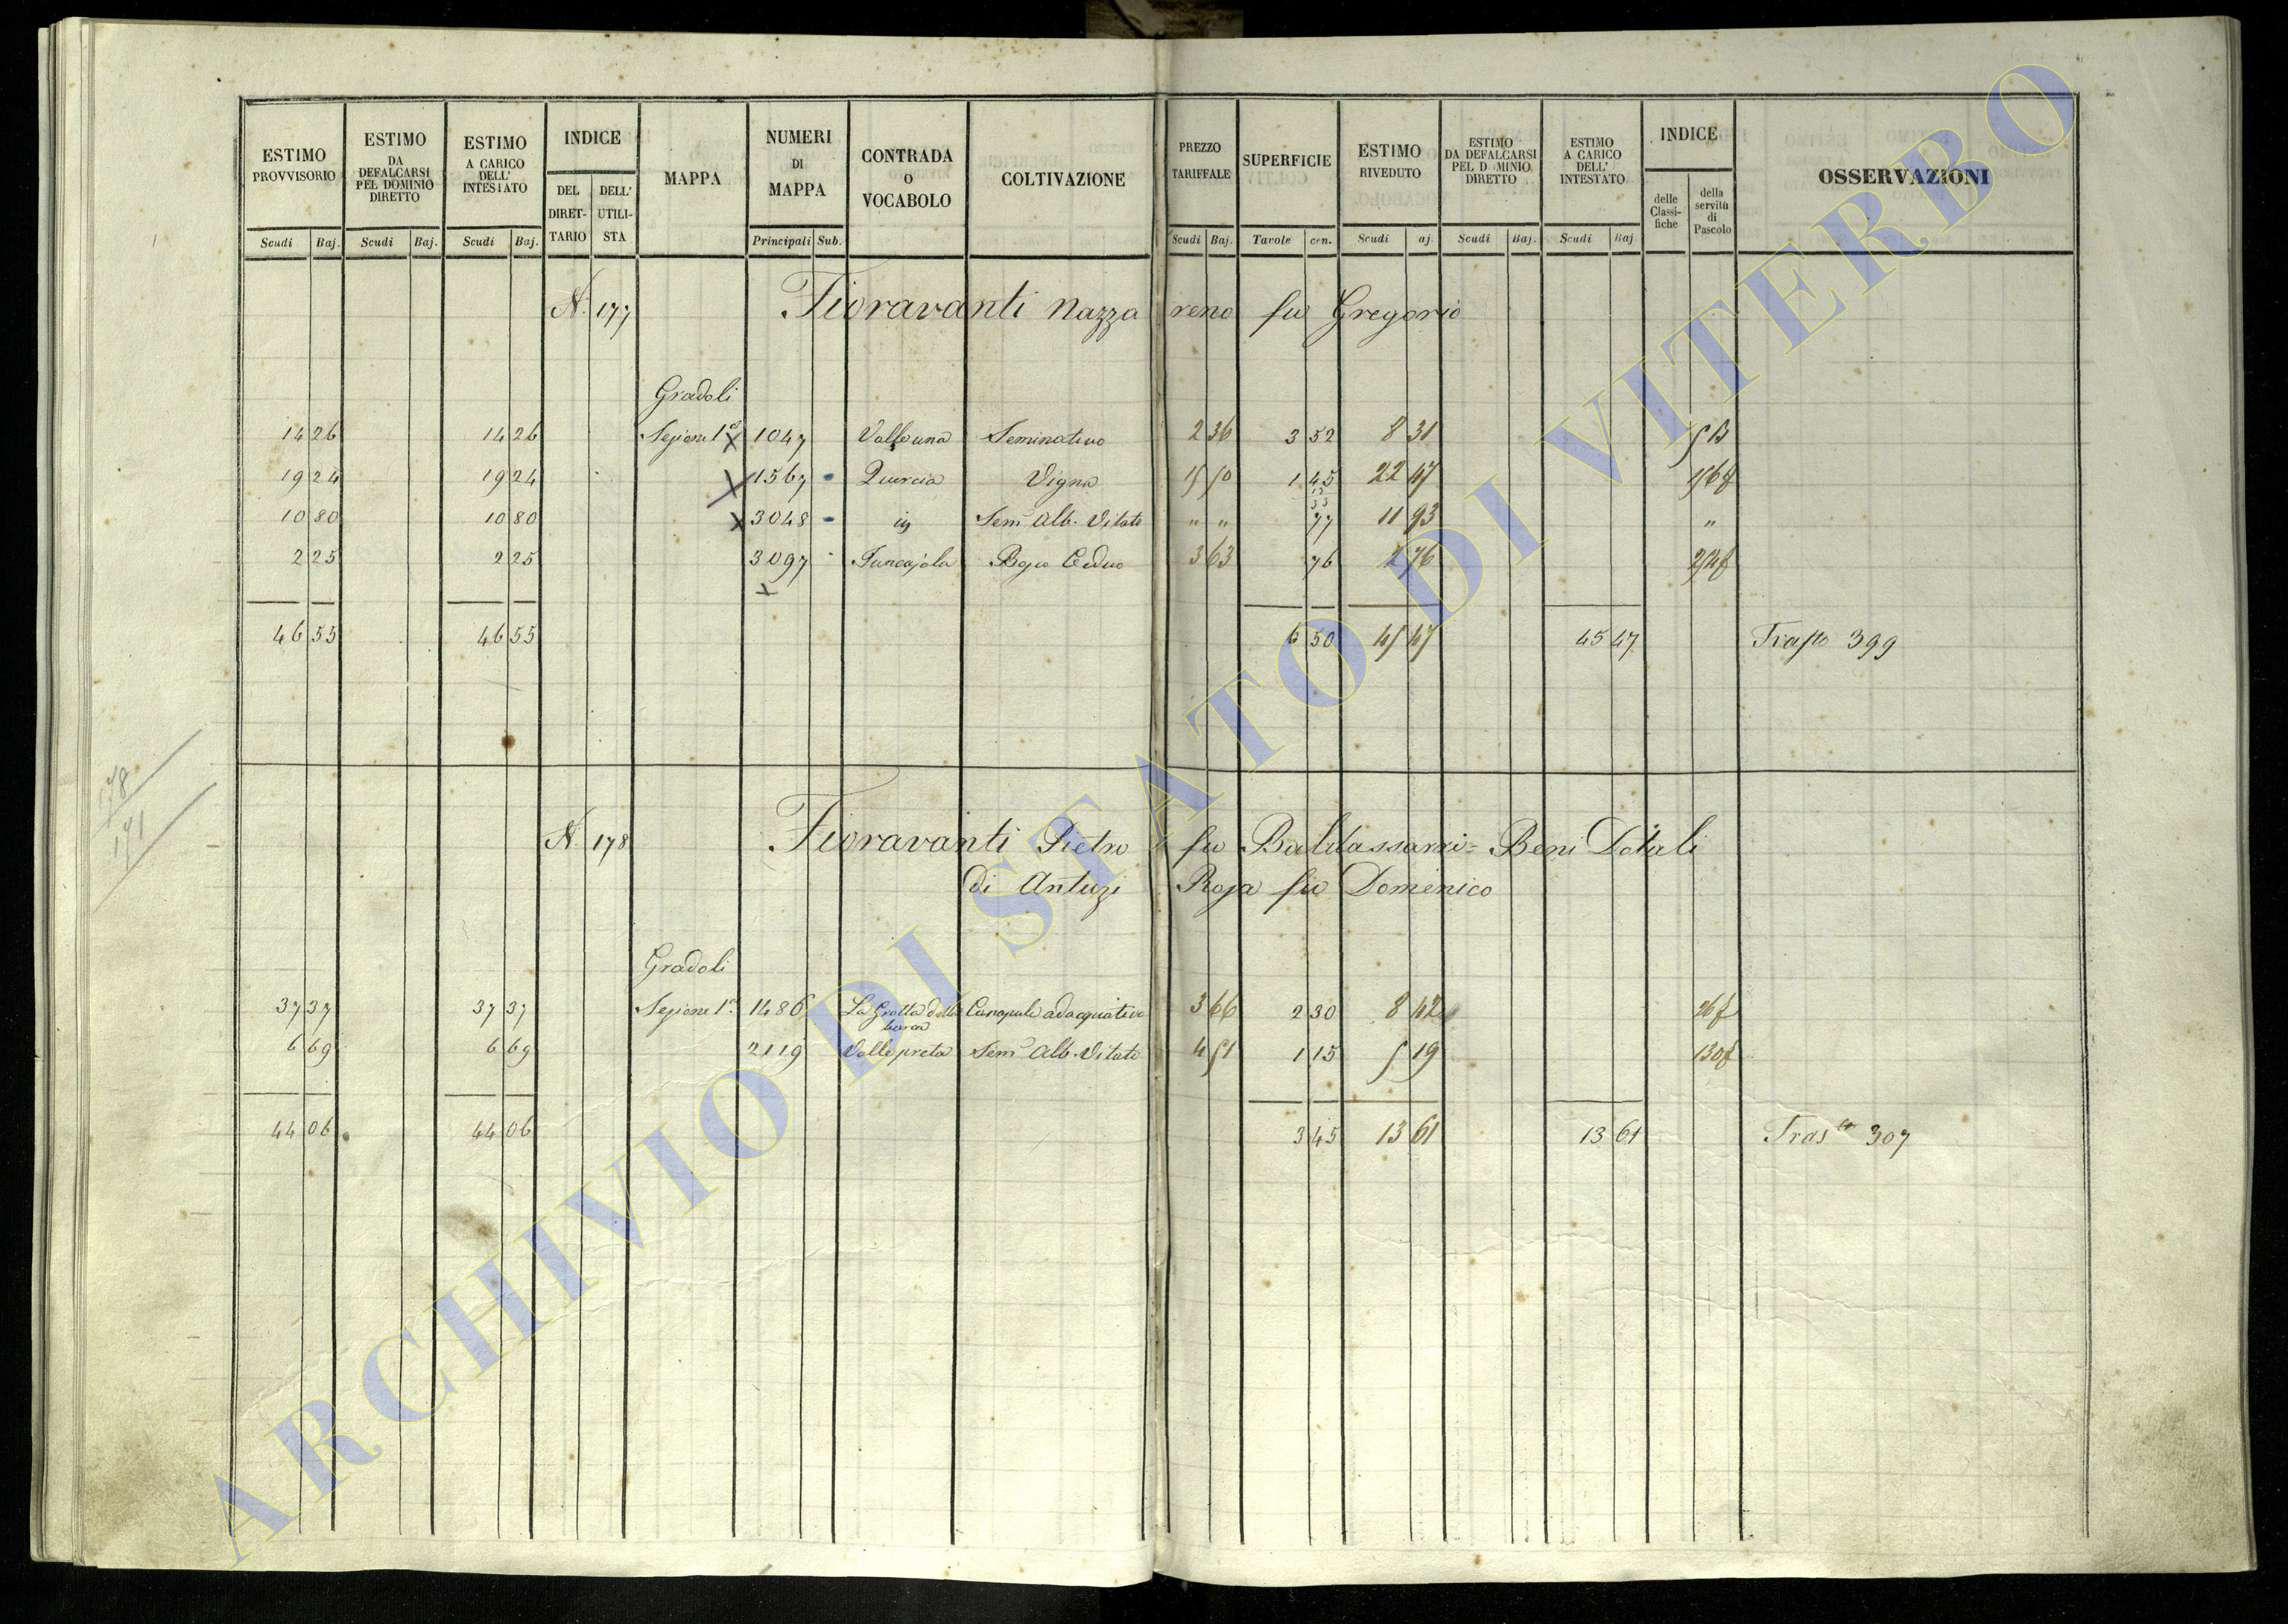 ESTIMO PROVVISORIO | ESTIMO DA DEFALCARSI PEL DOMINIO DIRETTO | ESTIMO A CARICO DELL' INTESTATO | INDICE DEL DIRETTARIO | DELL' UTILISTA | MAPPA | NUMERI DI MAPPA | CONTRADA O VOCABOLO | COLTIVAZIONE | PREZZO TARIFFALE | SUPERFICIE | ESTIMO RIVEDUTO | ESTIMO DA DEFALCARSI PEL D MINIO DIRETTO | ESTIMO A CARICO DELL' INTESTATO | INDICE delle Classifiche | della servitù di Pascolo | OSSERVAZIONI
Scudi | Baj. | Scudi | Baj. | Scudi | Baj. | Principali | Sub. | Scudi | Baj. | Tavole | cen. | Scudi | aj. | Scudi | Baj. | Scudi | Baj.
N. 177 Fioravanti Nazzareno fu Gregorio
Gradoli
14 26 | 14 26 | Sezione 1a | 1047 | Valleuna | Seminativo | 2 36 | 3 52 | 8 31
19 24 | 19 24 | 1567 | Quercia | Vigna | 15 50 | 1 45 | 22 47
10 80 | 10 80 | 3048 | Semo Alb. Vitato | " " | 77 | 11 93 | "
2 25 | 2 25 | 3097 | Bojo Ceduo | 3 63 | 76 | 2 76
46 55 | 46 55 | 6 50 | 45 47 | 45 47 | Trasto 399
178
171
N. 178 Fioravanti Pietro fu Baldassarri = Beni Dotali
di Antuzi Rosa fu Domenico
Gradoli
37 37 | 37 37 | Sezione 1a | 1486 | La Grotta della | Canapule adacquativo | 3 66 | 2 30 | 8 42 | 26 f
6 69 | 6 69 | 2119 | Valle preta | Semo Alb. Vitato | 4 51 | 1 15 | 5 19 | 130 f
44 06 | 44 06 | 3 45 | 13 61 | 13 61 | Trasto 307
ARCHIVIO DI STATO DI VITERBO